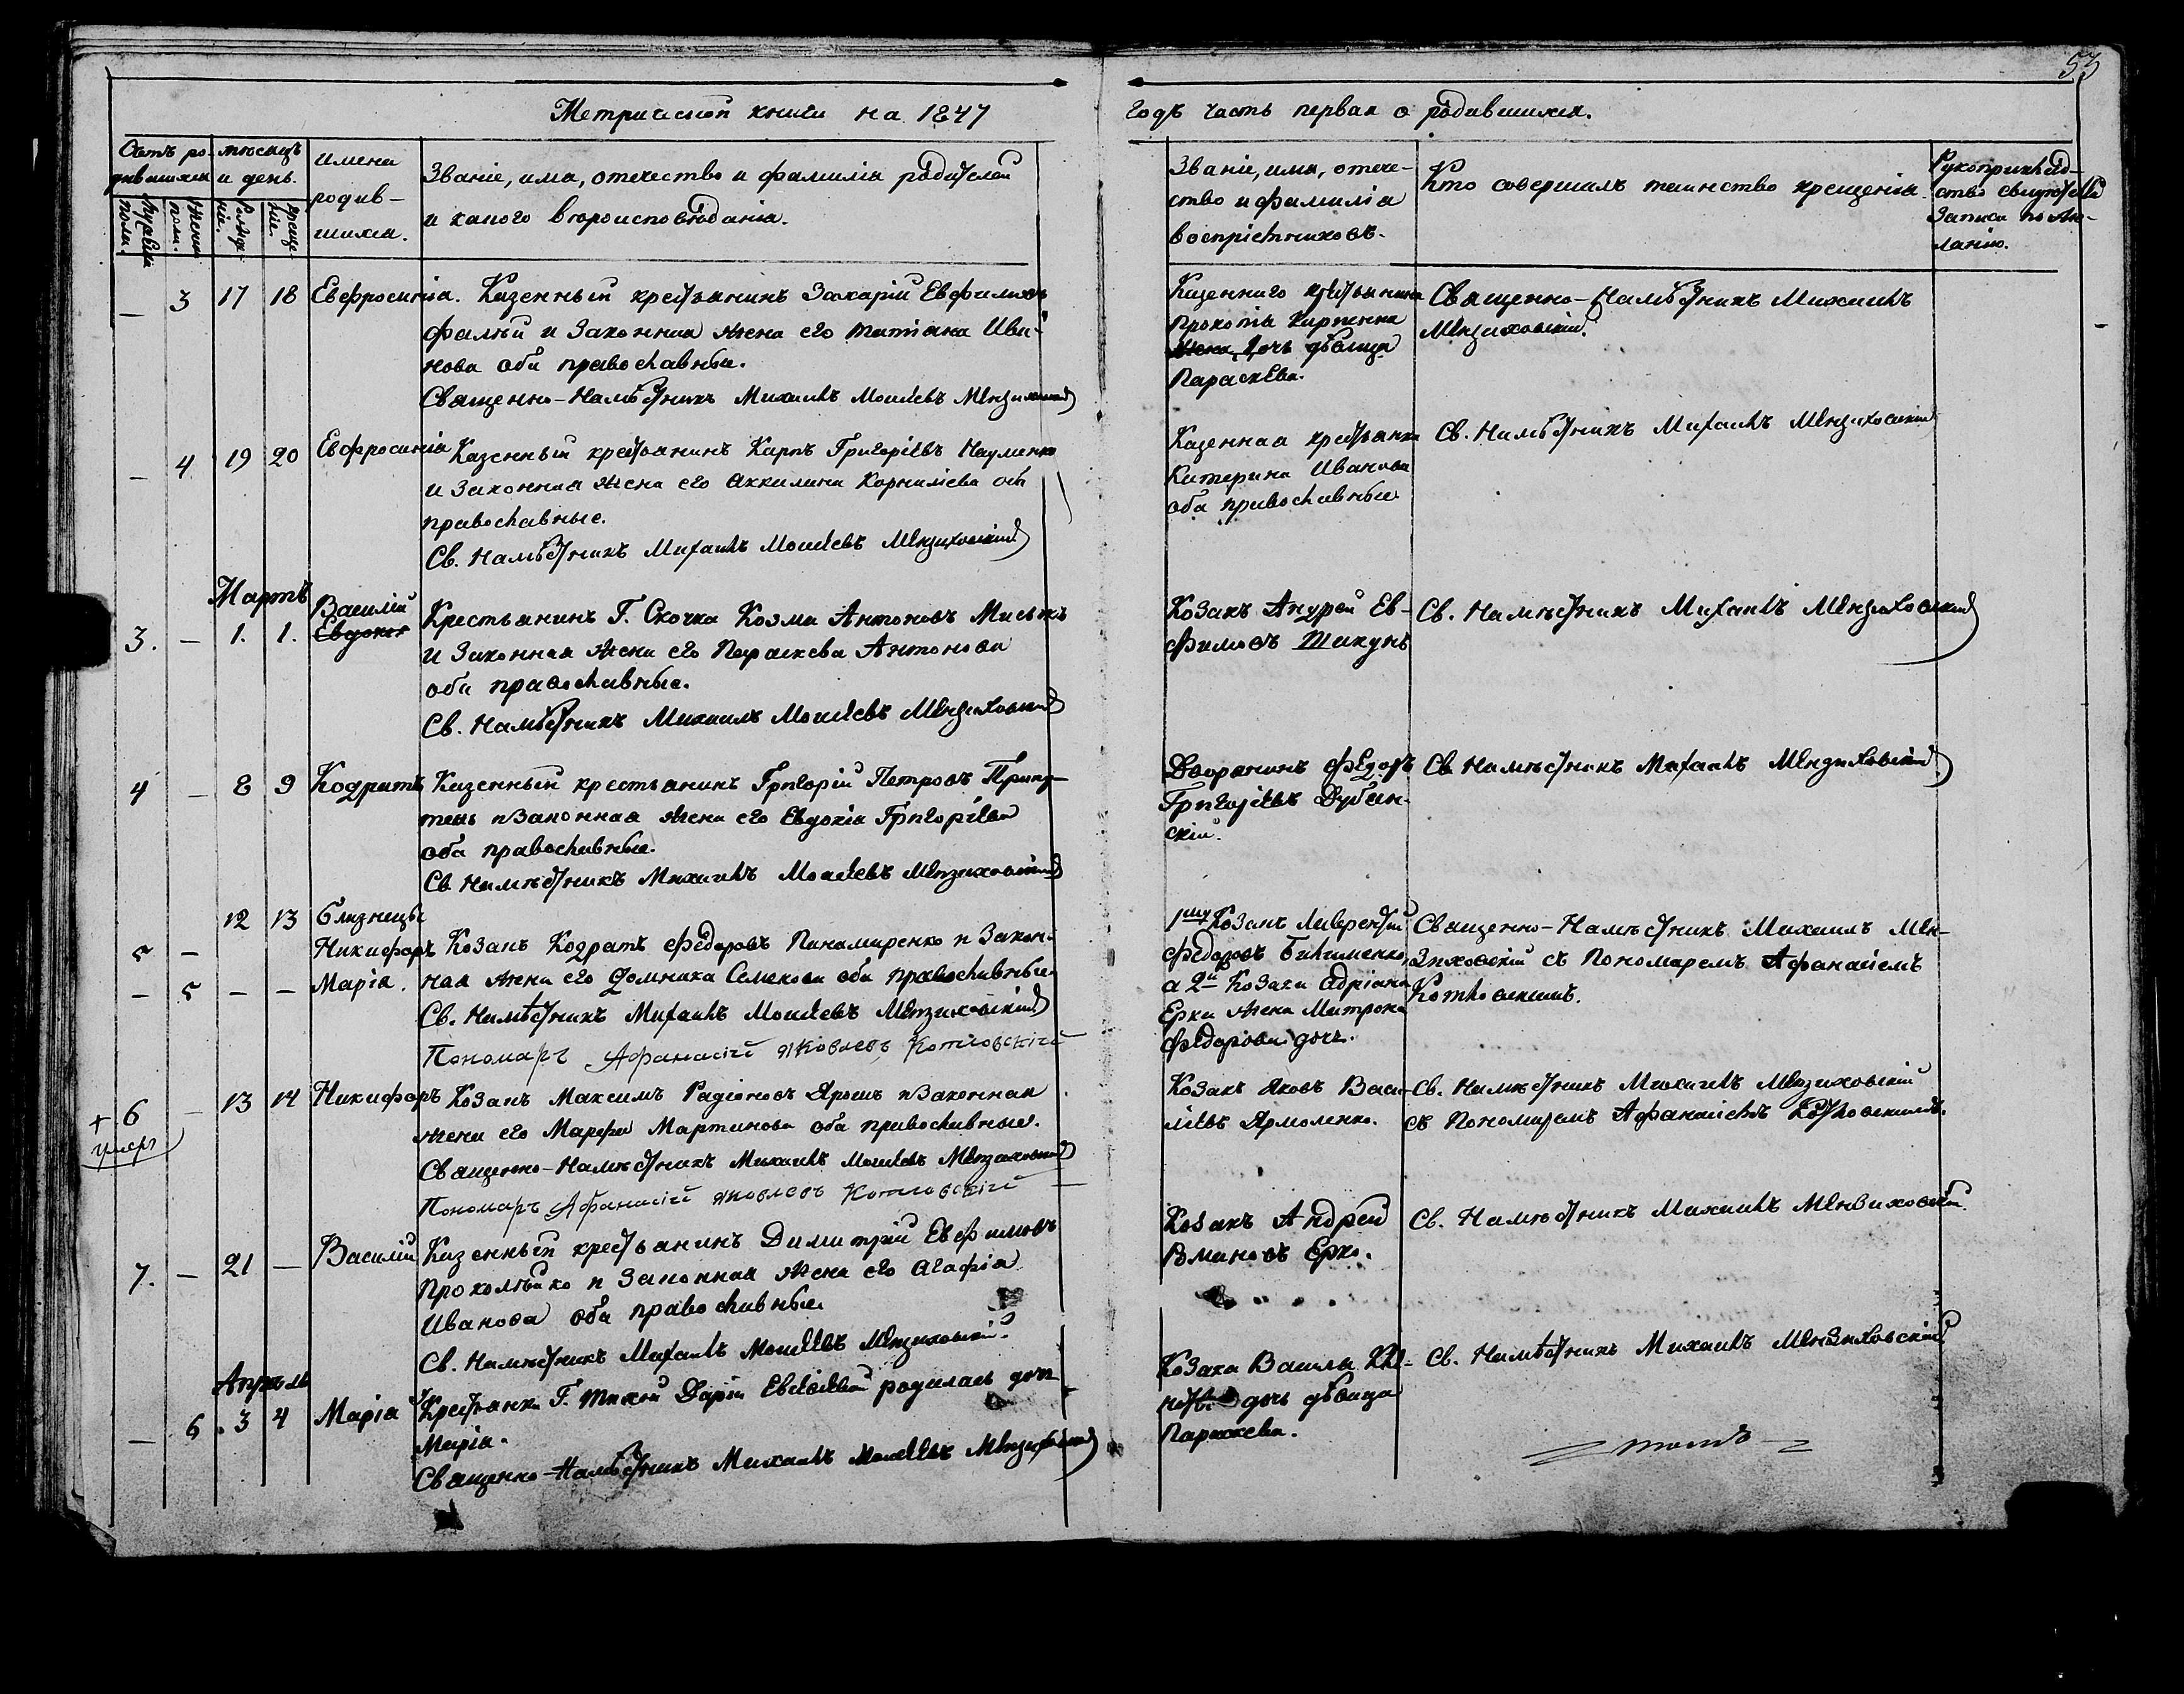 53
Метрической книги на 1847
годъ часть первая о родившихся.
Счетъ ро-
дившихся
мужеска
пола.
женска
пола.
мѣсяцъ
и день.
рожде-
нія.
креще-
нія.
имена
родив-
шихся.
Званіе, имя, отечество и фамилія родителей
и какого вѣроисповѣданія.
Званіе, имя, отече-
ство и фамилія
воспріемниковъ.
Кто совершалъ таинство крещенія.
Рукоприклад-
ство свидѣтелей
записи по же-
ланію.
— 3 17 18 Евфросинія. Казенный крестьянинъ Захарій Евфимовъ
фалѣй и законная жена его татіана Ива-
нова оба православные.
Священно-Намѣстникъ Михаилъ Моисеевъ
Казенного крестьянина
Прокопія Кирпенка
жена дочь дѣвица
Параскева.
Священно-Намѣстникъ Михаилъ
— 4 19 20 Евфросинія Казенный крестьянинъ Карпъ Григоріевъ Науменко
и законная жена его Акилина Корниліева оба
православные.
Св. Намѣстникъ Михаилъ Моисеевъ
Казенная крестьянка
Катерина Иванова
оба православные
Св. Намѣстникъ Михаилъ
Мартъ
3. — 1. 1. Василій
Евдокія
Крестьянинъ Г. Скочка Козма Антоновъ
и законная жена его Параскева Антонова
оба православные.
Св. Намѣстникъ Михаилъ Моисеевъ
Козакъ Андрей Ев-
фимовъ Шикунъ
Св. Намѣстникъ Михаилъ
4 — 8 9 Кодратъ Казенный крестьянинъ Григорій Петровъ
и законная жена его Евдокія Григоріева
оба православные.
Св Намѣстникъ Михаилъ Моисеевъ
Дворянинъ Федоръ
Григоріевъ Дубян-
скій.
Св Намѣстникъ Михаилъ
12 13 близнецы
5 — Никифоръ Козакъ Кодратъ Федоровъ Пономаренко и закон-
— 5 — — Марія. ная жена его Домника Семенова оба православные
Св. Намѣстникъ Михаилъ Моисеевъ
Пономарь Афанасій Яковлевъ Котковскій
Козакъ Лаврентій
Федоровъ
а 2й Козака Адріана
Ерка жена Матрона
Федорова дочь.
Священно-Намѣстникъ Михаилъ
съ Пономаремъ Афанасіемъ
Котковскимъ.
+ 6 — 13 14 Никифоръ Козакъ Максимъ Радіоновъ Ярошъ и законная
умеръ
жена его Марфа Мартинова оба православные.
Священно-Намѣстникъ Михаилъ Моисеевъ
Пономарь Афанасій Яковлевъ Котковскій
Козакъ Яковъ Васи-
ліевъ Ярмоленко.
Св. Намѣстникъ Михаилъ
съ Пономаремъ Афанасіемъ Котковскимъ.
7. — 21 — Василій Казенный крестьянинъ Димитрій Евфимовъ
и законная жена его Агафія
Иванова оба православные
Св. Намѣстникъ Михаилъ Моисеевъ
Козакъ Андрей
Романовъ Ерко.
Св. Намѣстникъ Михаилъ
Апрель
— 6 3 4 Марія Крестьянки Г. Дарій родилась дочь
Марія.
Священно-Намѣстникъ Михаилъ Моисеевъ
Козака Василя
дочь дѣвица
Параскева.
Св. Намѣстникъ Михаилъ